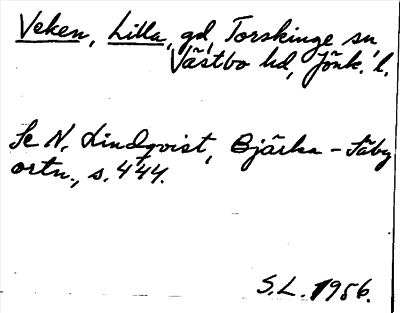 Veken, Lilla, gd, Torskinge sn
Västbo hd, Jönk. l.
Se N. Lindqvist, Bjärka-Säby
ortn., s. 444.
S.L. 1956.